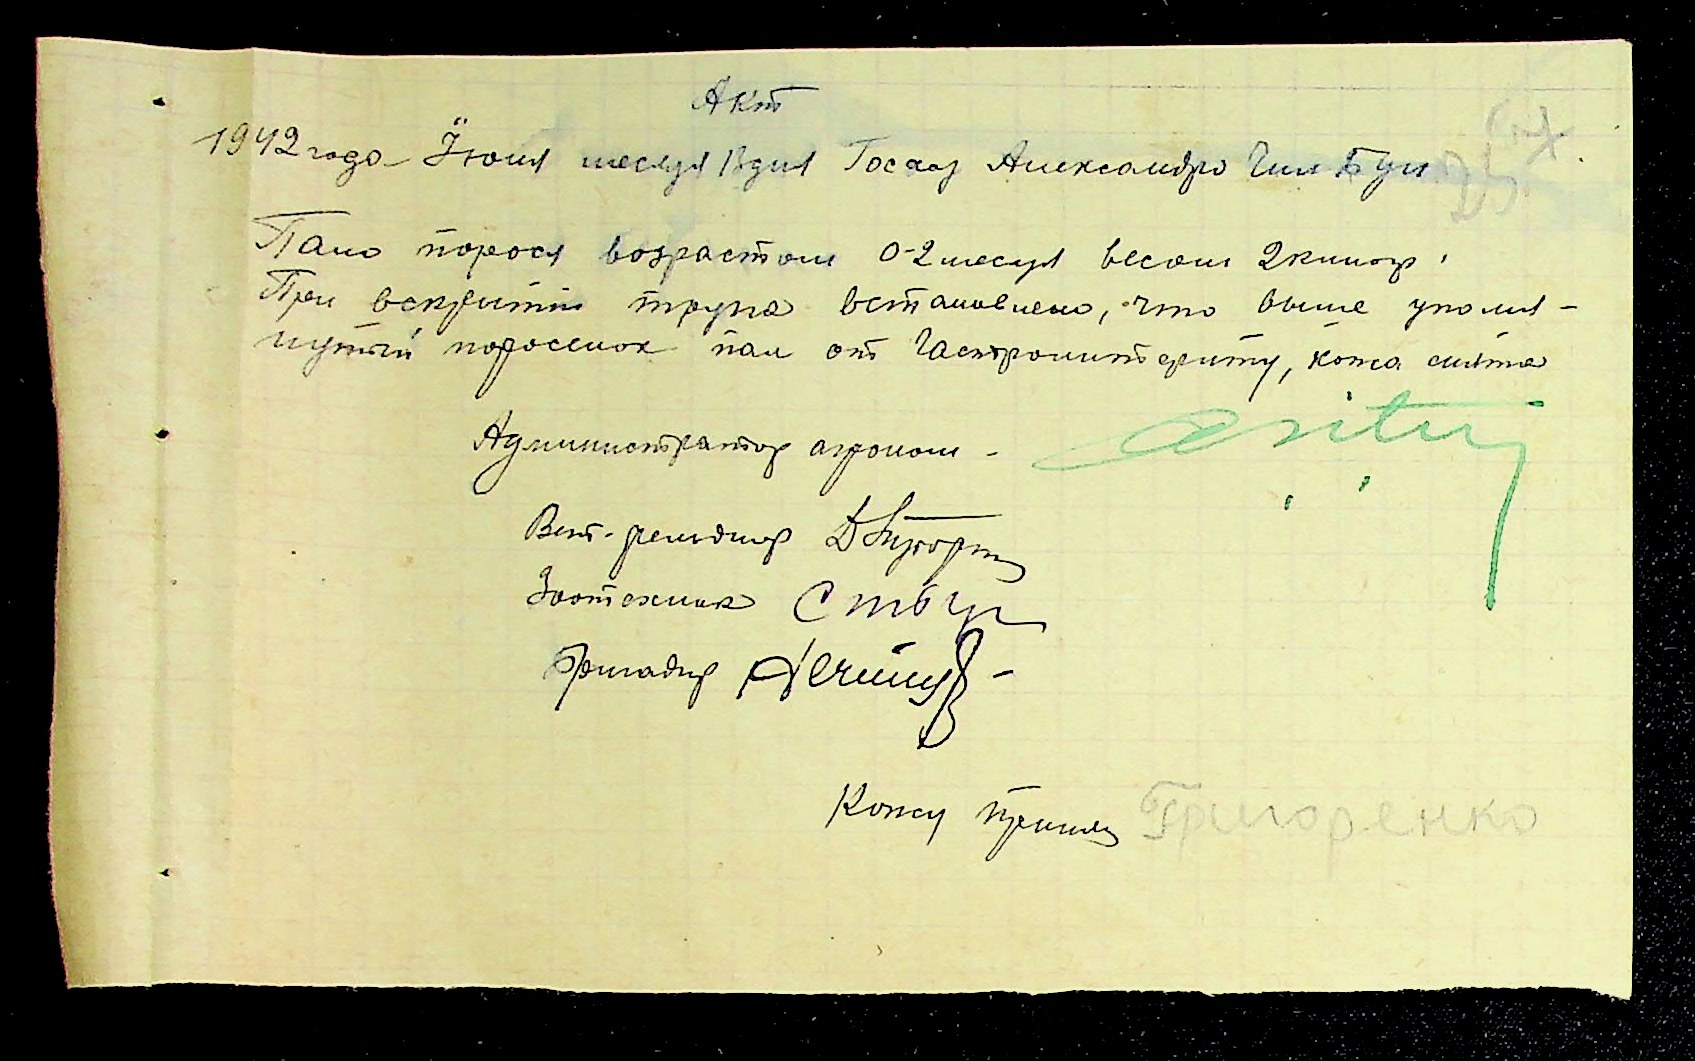 Акт
1942 года Июня месяця 13 дня Госхоз Александро Чин Бун
Пало порося возрастом 0-2 месяця весом 2 килогр.
При вскрытии трупа встановлено, что выше упомя-
нутый поросенок пал от Гастроинтериту, кожа снята
Администратор агроном -
Вет-фельдшер
Зоотехник
Бригадир
Кожу принял Григоренко